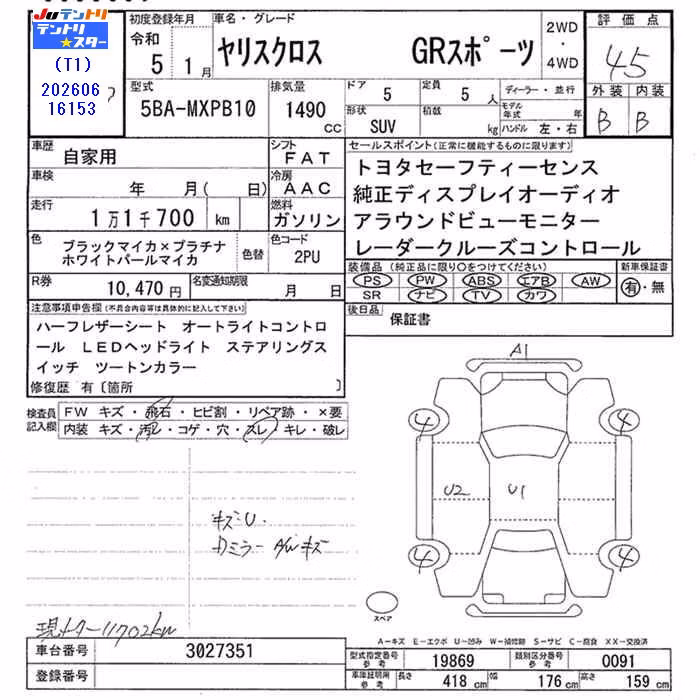 JUテントリ
テントリ
★スター
(T1)
202606
16153
初度登録年月
令和
5 1月
車名・グレード
ヤリスクロス GRスポーツ
2WD
・
4WD
評価点
4.5
外装 内装
B B
型式
5BA-MXPB10
排気量
1490
CC
ドア
5
定員
5 人
形状
SUV
積載
kg
ディーラー・並行
モデル
年式 年
ハンドル 左・右
車歴
自家用
シフト
FAT
車検
年 月( 日)
冷房
AAC
走行
1万1千700 km
燃料
ガソリン
色
ブラックマイカ×プラチナ
ホワイトパールマイカ
色替
色コード
2PU
R券
10,470 円
名変通知期限
月 日
セールスポイント(正常に機能するものに限ります)
トヨタセーフティーセンス
純正ディスプレイオーディオ
アラウンドビューモニター
レーダークルーズコントロール
装備品(純正品に限り○をつけてください)
PS PW ABS エアB AW
SR ナビ TV カワ
新車保証書
有・無
後日品
保証書
注意事項申告欄(不具合内容等は具体的に記入して下さい)
ハーフレザーシート オートライトコントロ
ール LEDヘッドライト ステアリングス
イッチ ツートンカラー
修復歴 有〔箇所 〕
検査員
記入欄
FW キズ・飛石・ヒビ割・リペア跡・×要
内装 キズ・汚レ・コゲ・穴・スレ・キレ・破レ
キズU.
Dミラー AWキズ
現メーター11702km
A1
4 4
U2 U1
4 4
スペア
A-キズ E-エクボ U-凹み W-補修跡 S-サビ C-腐食 XX-交換済
車台番号
3027351
登録番号
型式指定番号
参考
19869
類別区分番号
参考
0091
車庫証明用
参考
長さ
418 cm
幅
176 cm
高さ
159 cm